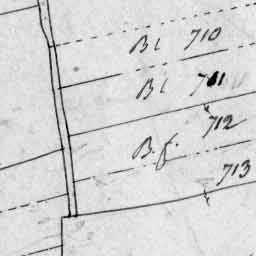 Bl 710
Bl 711
712
B.f.
713